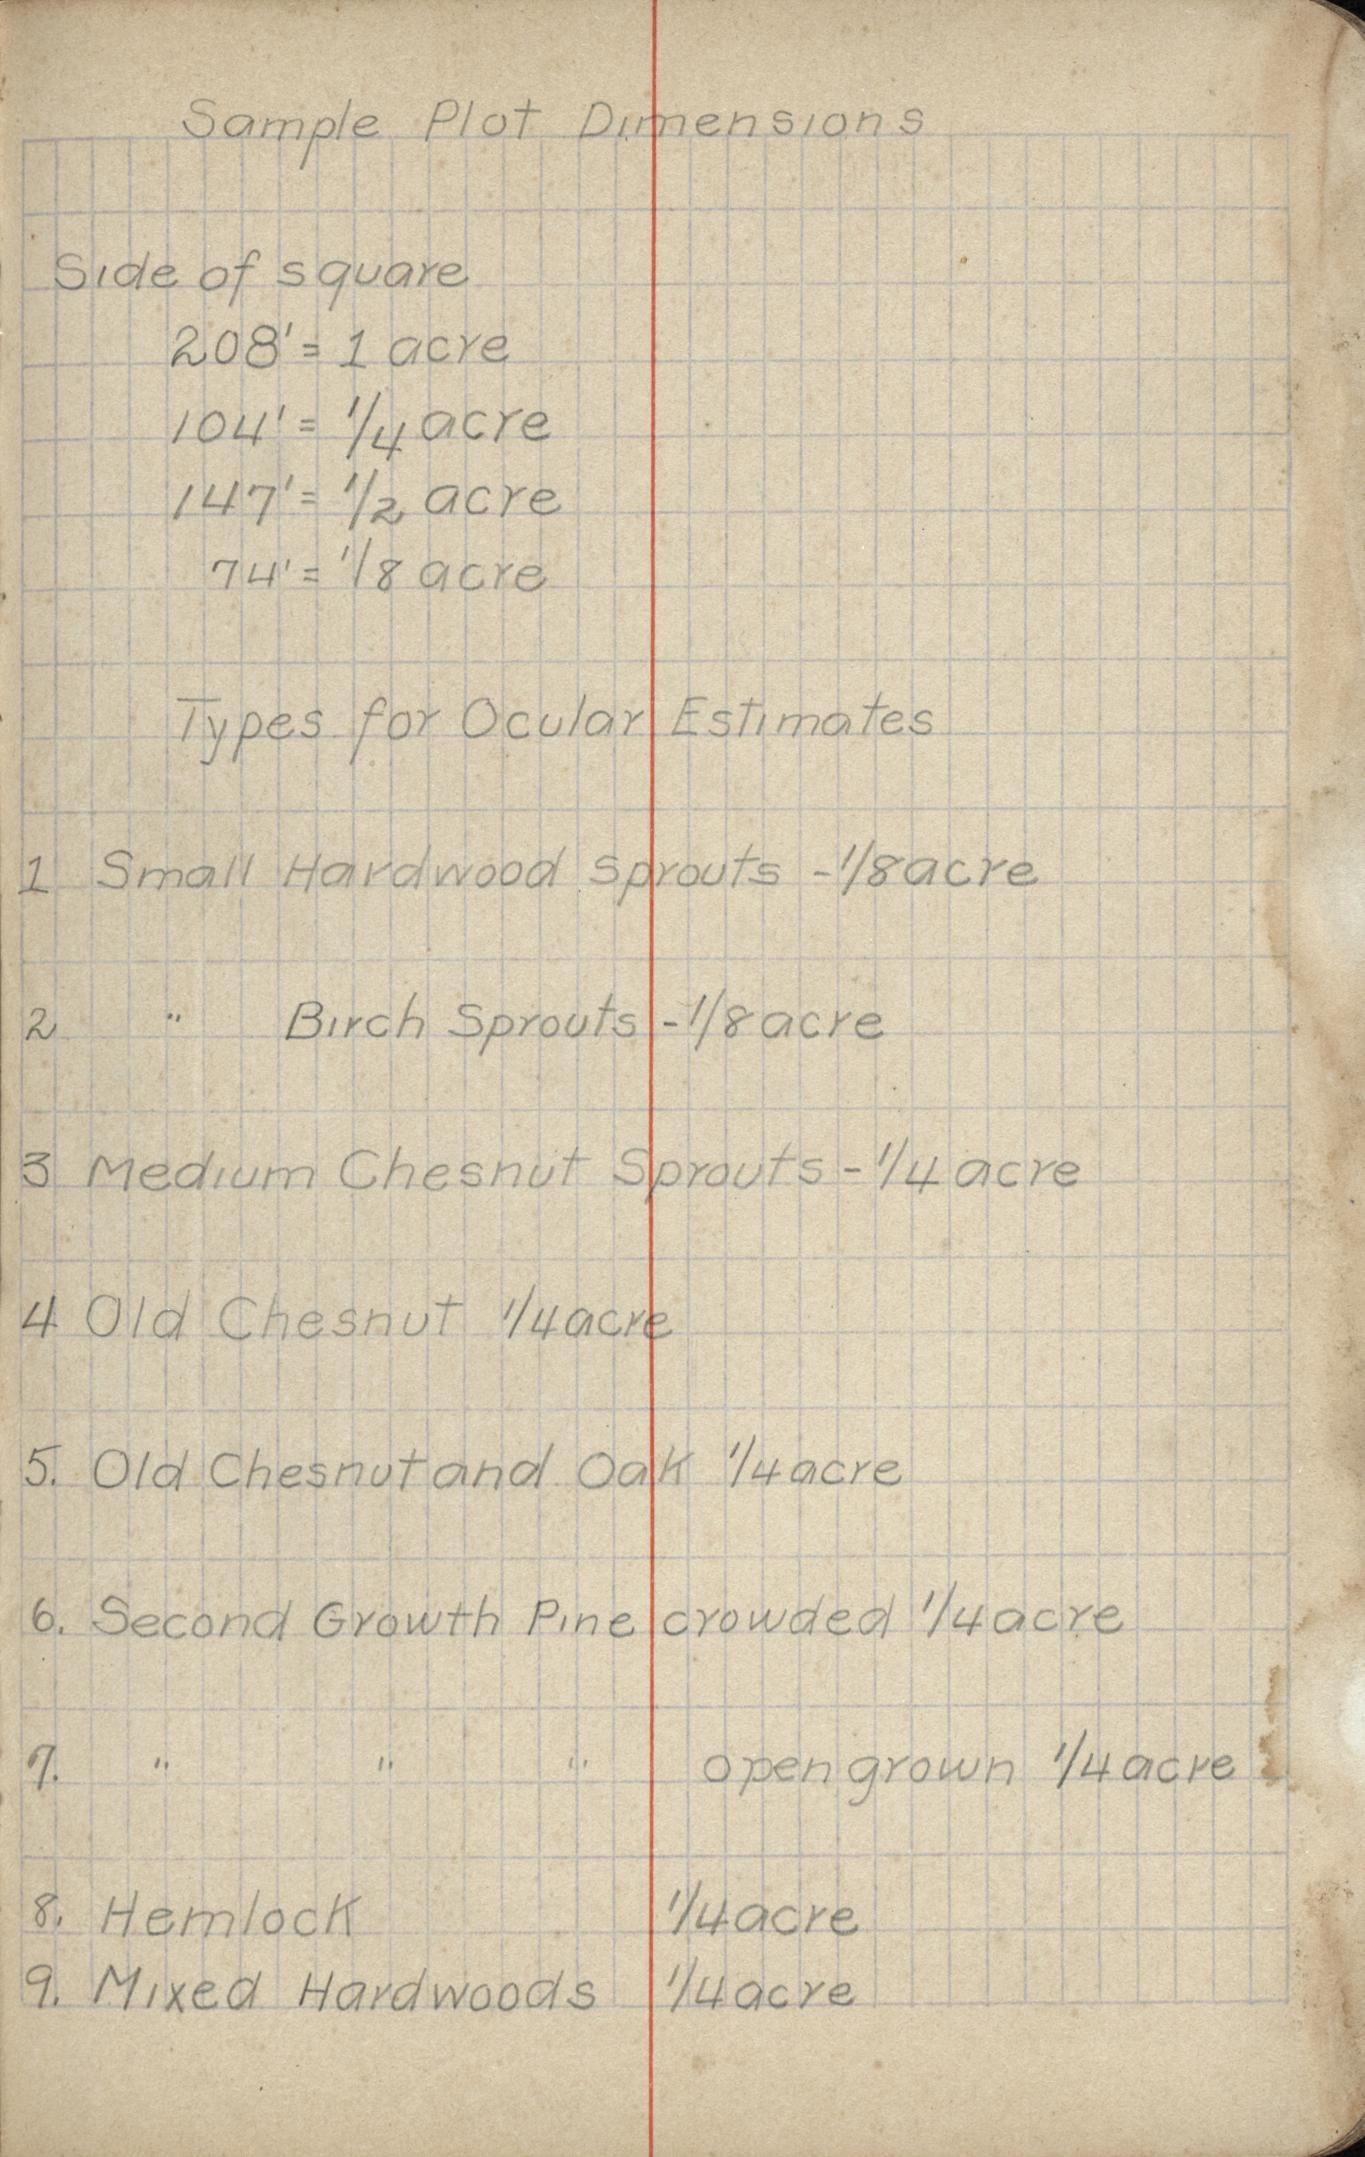 Sample Plot Dimensions
Side of square
208' = 1 acre
104' = 1/4 acre
147' = 1/2 acre
74' = 1/8 acre
Types for Ocular Estimates
1 Small Hardwood sprouts - 1/8 acre
2 " Birch Sprouts - 1/8 acre
3 Medium Chesnut Sprouts - 1/4 acre
4 Old Chesnut 1/4 acre
5. Old Chesnut and Oak 1/4 acre
6. Second Growth Pine crowded 1/4 acre
7. " " " open grown 1/4 acre
8. Hemlock 1/4 acre
9. Mixed Hardwoods 1/4 acre